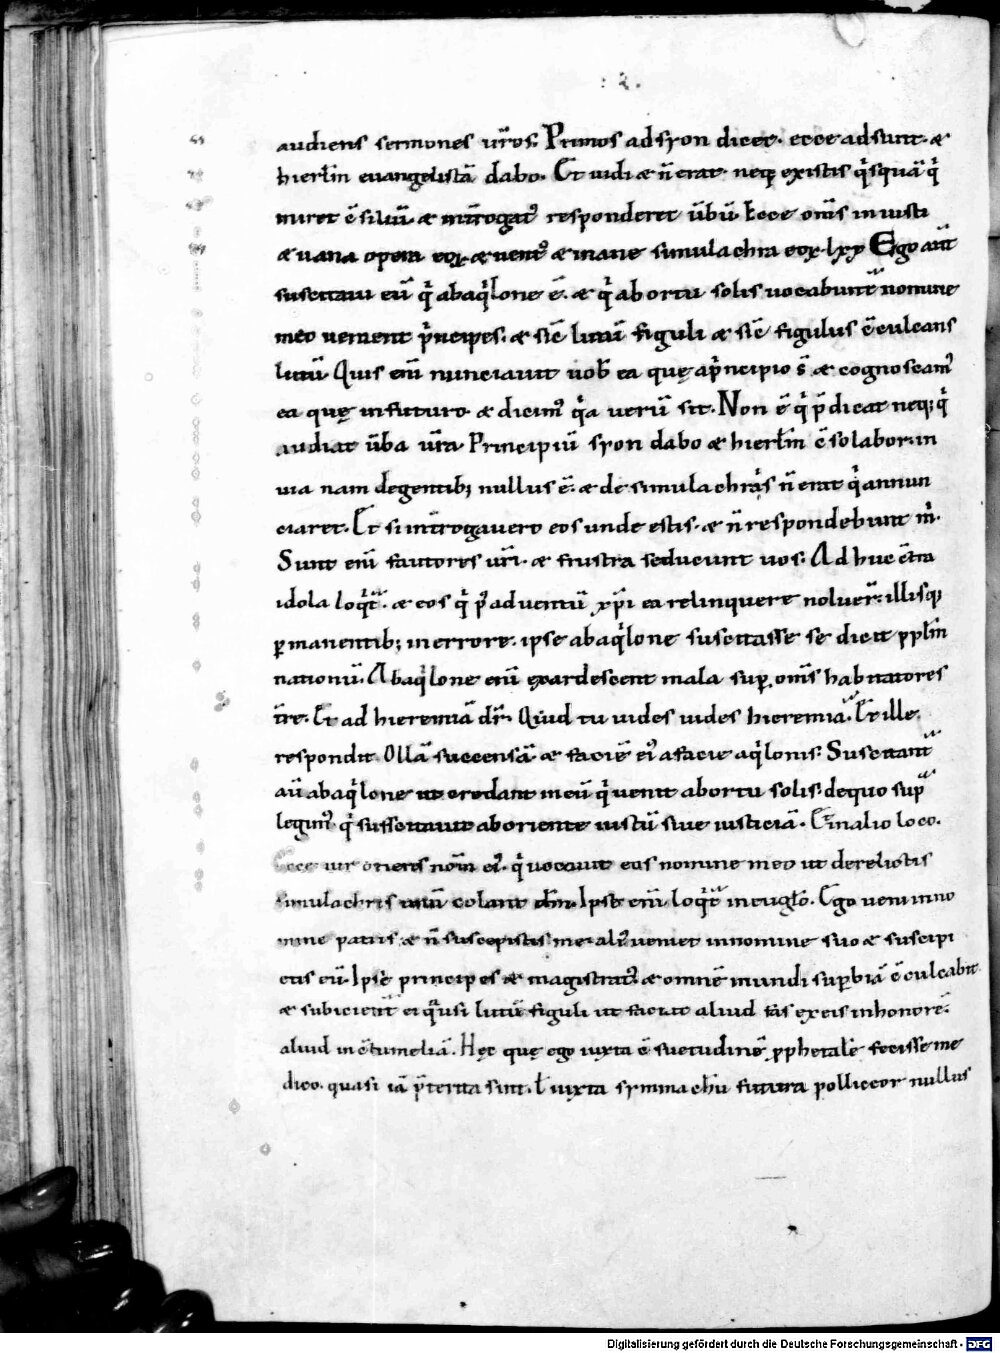 audiens sermones ur̄os. Primus ad syon dicet. ecce adsunt. &
hierl̄m euangelistā dabo. Et uidi & n̄ erat. neq; existis q̇squā q̇
iniret c̄siliū. & int̄rogat᾽ responderet ūbū. Ecce om̄s iniusti
& uana opera eoꝝ. & uent᾽ & inane simulachra eoꝝ. lxx Ego aūt
suscitaui eū q̇ ab aq̇lone ē. & q̇ ab ortu solis uocabunt̄ nomine
meo uenient ṗncipes. & sic̄ lutū figuli & sic̄ figulus c̄culcans
lutū Quis eni̅ nunciauit uob̄ ea quę a ṗncipio s̄ & cognoscam᾽
ea quę in futuro. & dicim᾽ q̇a uerū sit. Non ē q̇ p̄dicat neq; q̇
audiat ūba ur̄a Principiū syon dabo & hierl̄m c̄solabor. in
uia nam degentib; nullus ē. & de simulachris n̄ erat q̇ annun
ciaret. Et si int̄rogauero eos unde estis. & n̄ respondebunt m̄.
Sunt eni̅ fautores ur̄i. & frustra seducunt uos. Adhuc c̄tra
idola loq̇t̄. & eos q̇ p᾽ aduentū xp̄i ea relinquere noluer̄. illisq;
ꝑmanentib; in errore. ipse ab aq̇lone suscitasse se dicit ppl̄m
nationū. Ab aq̇lone eni̅ exardescent mala suꝑ om̄s habitatores
t̄re. Et ad hieremiā dr̄. Quid tu uides uides hieremia. Et ille
respondit. Ollā succensā & facie̅ ei᾽ a facie aq̇lonis. Suscitant̄
aū ab aq̇lone ut credant in eū q̇ uenit ab ortu solis. de quo sup̄
legim᾽ q̇ suscitauit ab oriente iustū siue iusticiā. Et in alio loco.
Ecce uir oriens nom̄ ei᾽. q̇ uocauit eos nomine meo ut derelictis
simulachris unū colant dm̄. Ipse eni̅ loq̇t̄ in euḡlo. Ego ueni in no
mine patris. & n̄ suscepistis me. ali᾽ ueniet in nomine suo & suscipi
etis eū. Ipse principes & magistrat᾽ & omnē mundi suꝑbiā c̄culcabit
& subicient̄ ei q̇si lutū figuli ut faciat aliud uas ex eis in honorē.
aliud in c̄tumeliā. Hęc quę ego iuxta c̄suetudinē ꝓphetalē fecisse me
dico. quasi iā p̄terita sint. ł iuxta symmachū futura polliceor nullus
Digitalisierung gefördert durch die Deutsche Forschungsgemeinschaft - DFG